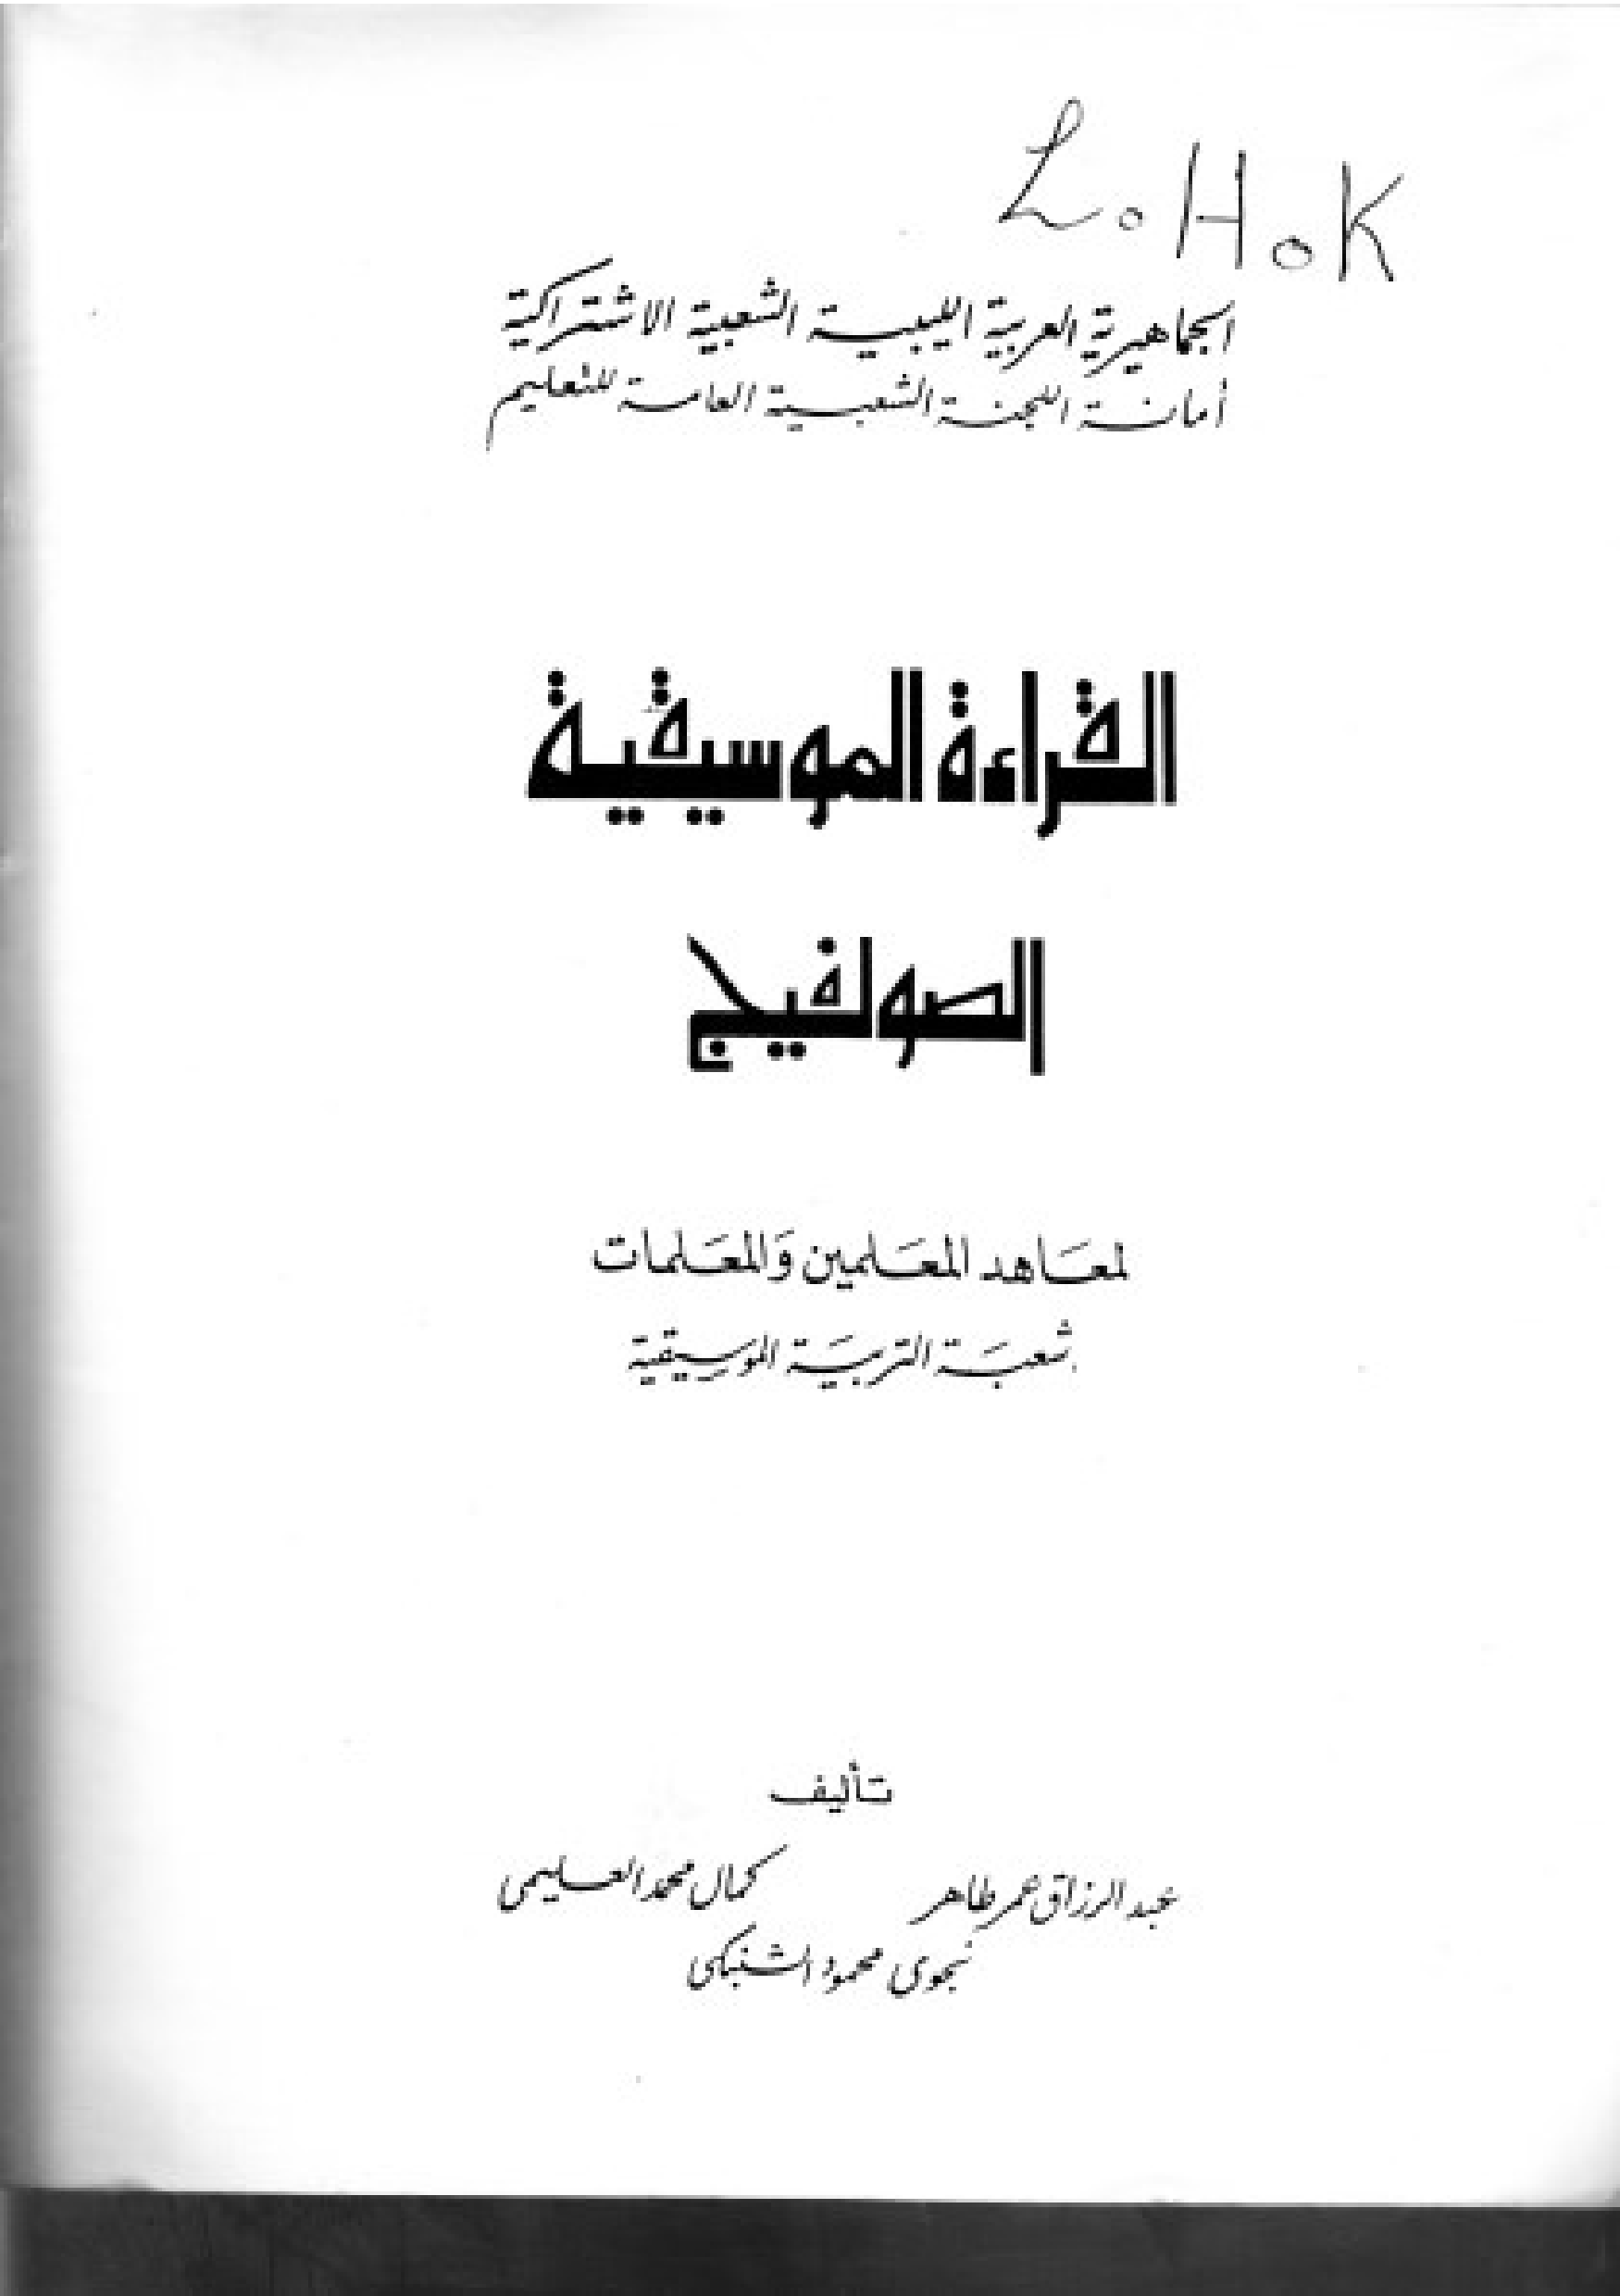 L.H.K
الجماهيرية العربية الليبية الشعبية الاشتراكية
أمانة اللجنة الشعبية العامة للتعليم
القراءة الموسيقية
الصولفيج
لمعَاهد المعَلمين وَالمعَلمات
شعبَة التربيَة الموسيقية
تأليف
عبد الرزاق عمر طاهر كمال محمد العليمى
نجوى محمود الشنبكى